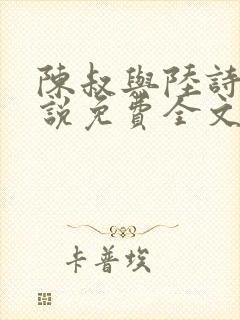 陳叔與陸詩
說免費全文
卡普埃